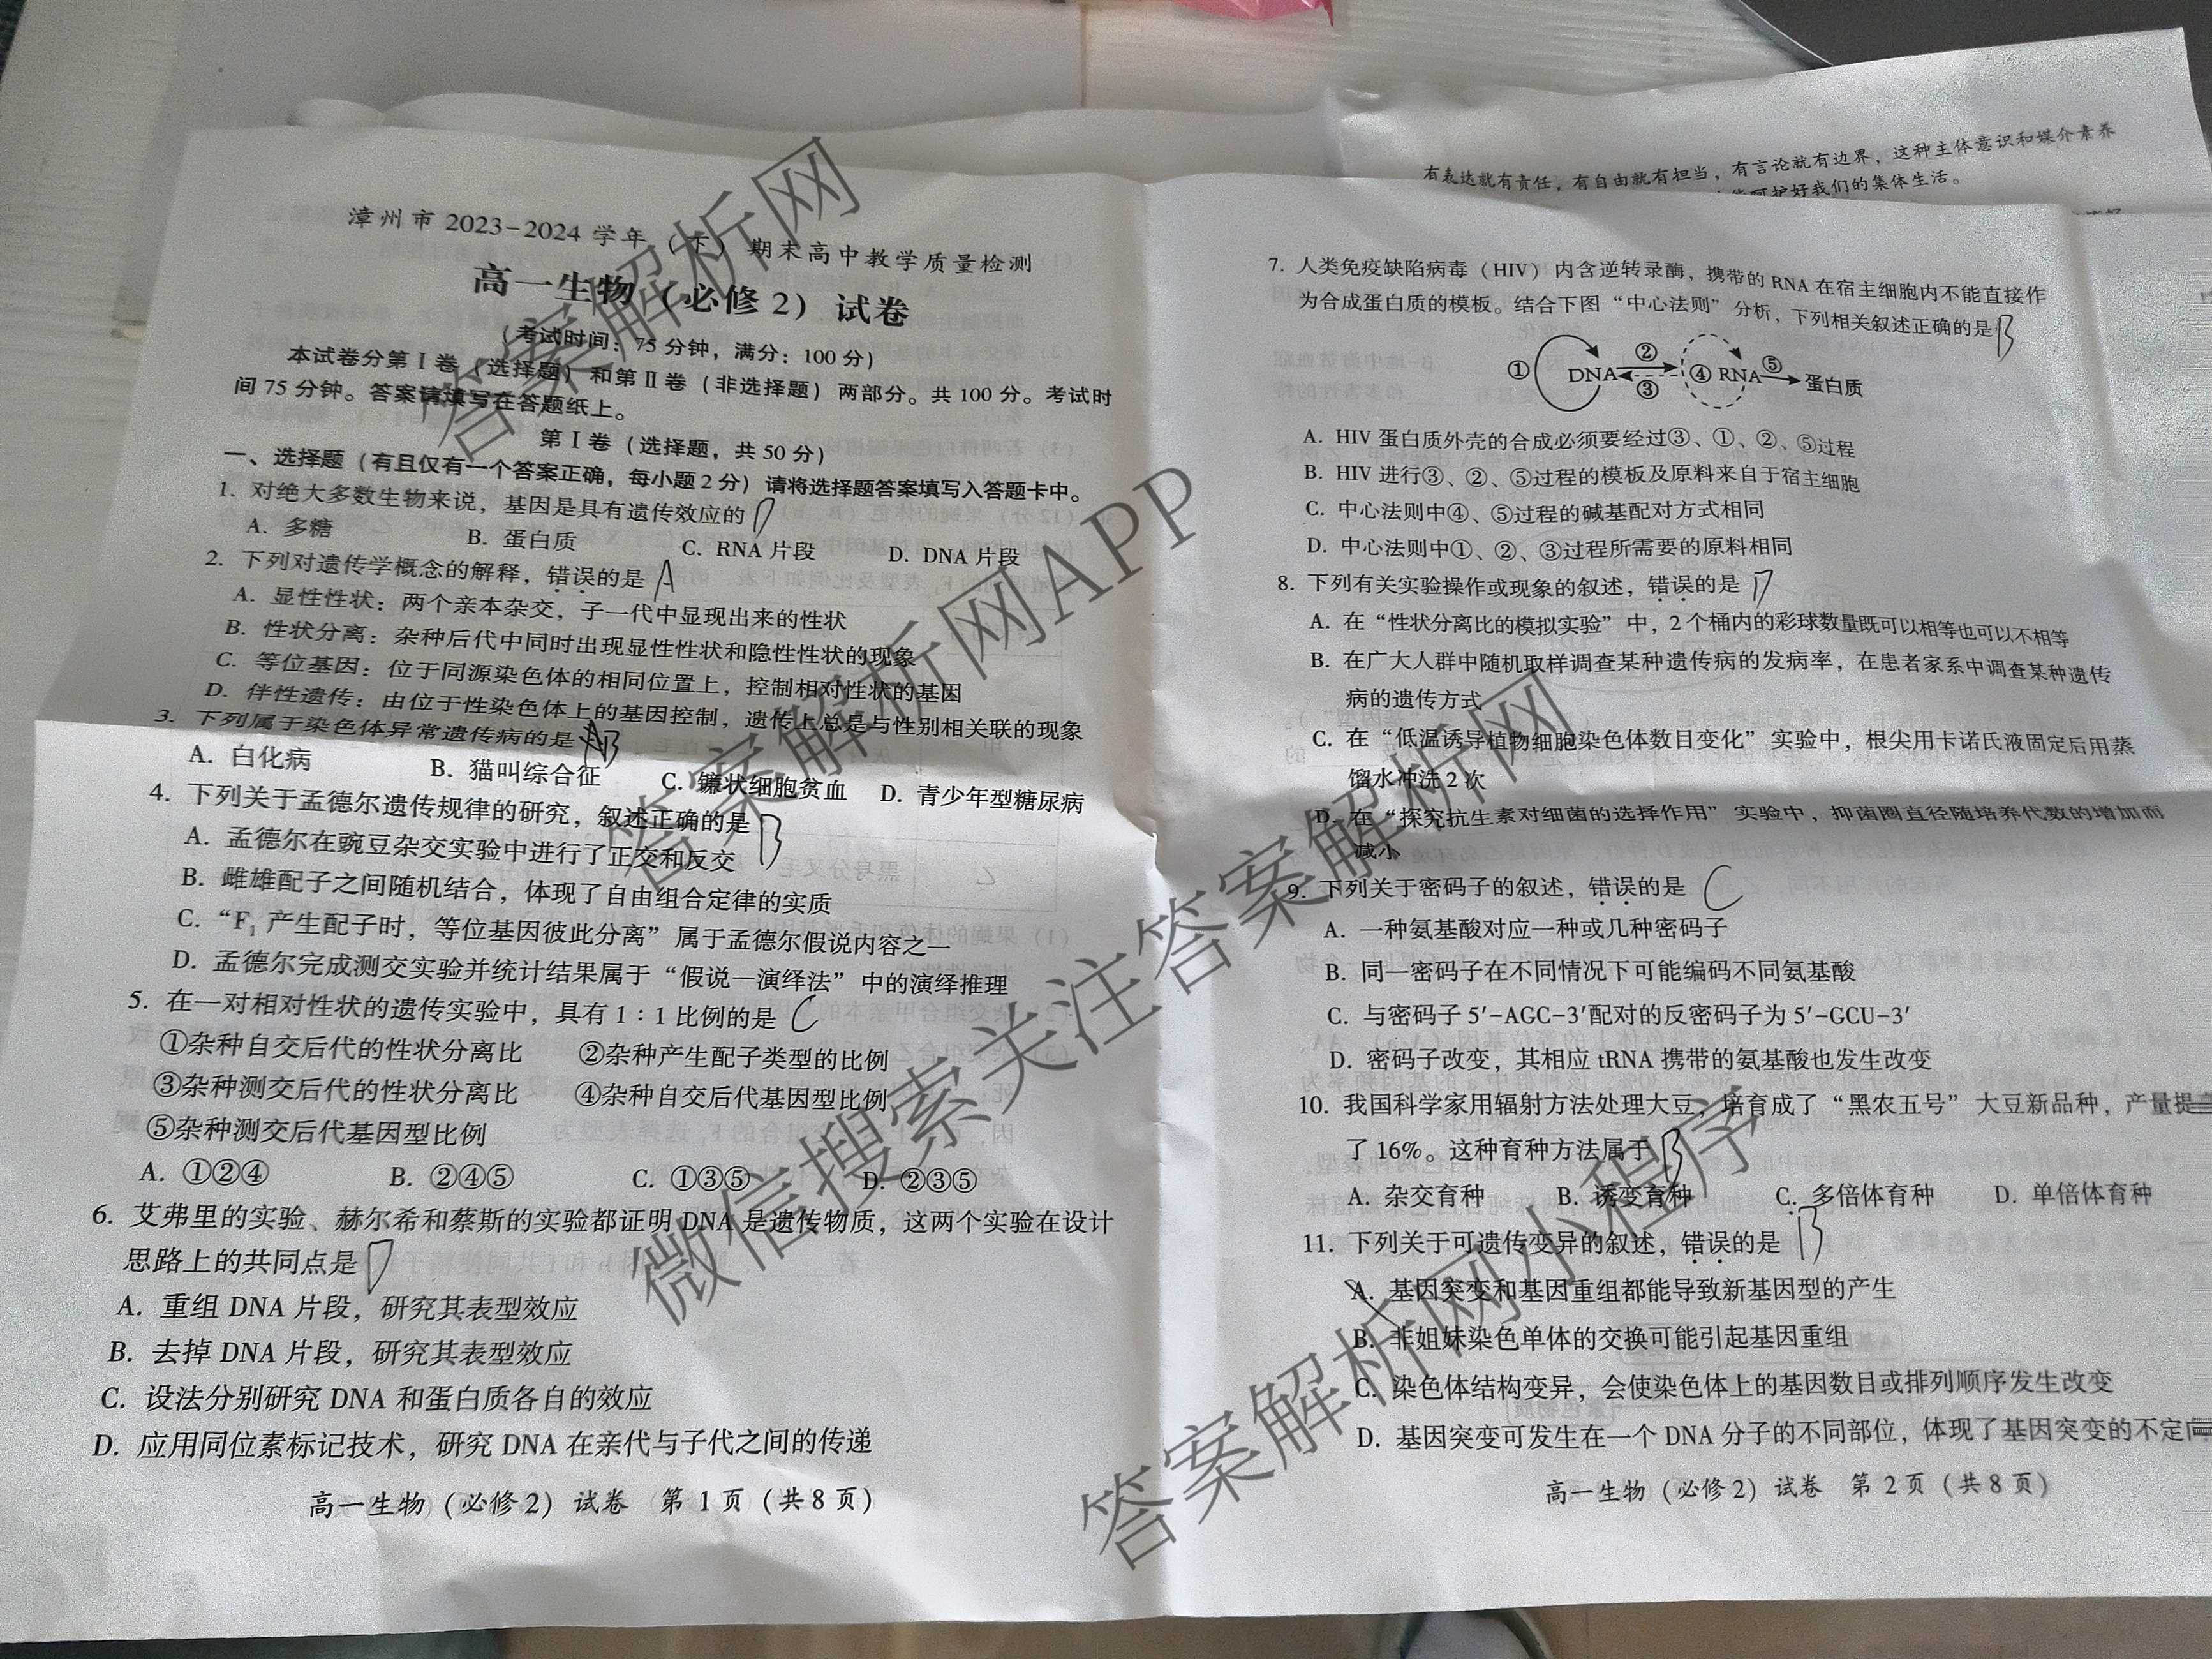 有表达就有责任，有自由就有担当，有言论就有边界，这种主体意识和媒介素养
呵护好我们的集体生活。
漳州市 2023-2024 学年（下）期末高中教学质量检测
高一生物（必修 2）试卷
（考试时间：75 分钟，满分：100 分）
本试卷分第Ⅰ卷（选择题）和第Ⅱ卷（非选择题）两部分。共 100 分。考试时
间 75 分钟。答案请填写在答题纸上。
第Ⅰ卷（选择题，共 50 分）
一、选择题（有且仅有一个答案正确，每小题 2 分）请将选择题答案填写入答题卡中。
1. 对绝大多数生物来说，基因是具有遗传效应的 D
A. 多糖 B. 蛋白质 C. RNA 片段 D. DNA 片段
2. 下列对遗传学概念的解释，错误的是 A
A. 显性性状：两个亲本杂交，子一代中显现出来的性状
B. 性状分离：杂种后代中同时出现显性性状和隐性性状的现象
C. 等位基因：位于同源染色体的相同位置上，控制相对性状的基因
D. 伴性遗传：由位于性染色体上的基因控制，遗传上总是与性别相关联的现象
3. 下列属于染色体异常遗传病的是 B
A. 白化病 B. 猫叫综合征 C. 镰状细胞贫血 D. 青少年型糖尿病
4. 下列关于孟德尔遗传规律的研究，叙述正确的是 B
A. 孟德尔在豌豆杂交实验中进行了正交和反交
B. 雌雄配子之间随机结合，体现了自由组合定律的实质
C. “F₁ 产生配子时，等位基因彼此分离”属于孟德尔假说内容之一
D. 孟德尔完成测交实验并统计结果属于“假说—演绎法”中的演绎推理
5. 在一对相对性状的遗传实验中，具有 1：1 比例的是 C
①杂种自交后代的性状分离比 ②杂种产生配子类型的比例
③杂种测交后代的性状分离比 ④杂种自交后代基因型比例
⑤杂种测交后代基因型比例
A. ①②④ B. ②④⑤ C. ①③⑤ D. ②③⑤
6. 艾弗里的实验、赫尔希和蔡斯的实验都证明 DNA 是遗传物质，这两个实验在设计
思路上的共同点是 D
A. 重组 DNA 片段，研究其表型效应
B. 去掉 DNA 片段，研究其表型效应
C. 设法分别研究 DNA 和蛋白质各自的效应
D. 应用同位素标记技术，研究 DNA 在亲代与子代之间的传递
高一生物（必修 2）试卷 第 1 页（共 8 页）
7. 人类免疫缺陷病毒（HIV）内含逆转录酶，携带的 RNA 在宿主细胞内不能直接作
为合成蛋白质的模板。结合下图“中心法则”分析，下列相关叙述正确的是 B
① DNA ② ③ ④ RNA ⑤ 蛋白质
A. HIV 蛋白质外壳的合成必须要经过③、①、②、⑤过程
B. HIV 进行③、②、⑤过程的模板及原料来自于宿主细胞
C. 中心法则中④、⑤过程的碱基配对方式相同
D. 中心法则中①、②、③过程所需要的原料相同
8. 下列有关实验操作或现象的叙述，错误的是 D
A. 在“性状分离比的模拟实验”中，2 个桶内的彩球数量既可以相等也可以不相等
B. 在广大人群中随机取样调查某种遗传病的发病率，在患者家系中调查某种遗传
病的遗传方式
C. 在“低温诱导植物细胞染色体数目变化”实验中，根尖用卡诺氏液固定后用蒸
馏水冲洗 2 次
D. 在“探究抗生素对细菌的选择作用”实验中，抑菌圈直径随培养代数的增加而
减小
9. 下列关于密码子的叙述，错误的是 C
A. 一种氨基酸对应一种或几种密码子
B. 同一密码子在不同情况下可能编码不同氨基酸
C. 与密码子 5′-AGC-3′配对的反密码子为 5′-GCU-3′
D. 密码子改变，其相应 tRNA 携带的氨基酸也发生改变
10. 我国科学家用辐射方法处理大豆，培育成了“黑农五号”大豆新品种，产量提高
了 16%。这种育种方法属于 B
A. 杂交育种 B. 诱变育种 C. 多倍体育种 D. 单倍体育种
11. 下列关于可遗传变异的叙述，错误的是 B
A. 基因突变和基因重组都能导致新基因型的产生
B. 非姐妹染色单体的交换可能引起基因重组
C. 染色体结构变异，会使染色体上的基因数目或排列顺序发生改变
D. 基因突变可发生在一个 DNA 分子的不同部位，体现了基因突变的不定向
高一生物（必修 2）试卷 第 2 页（共 8 页）
答案解析网
答案解析网APP
微信搜索关注答案解析网
答案解析网小程序